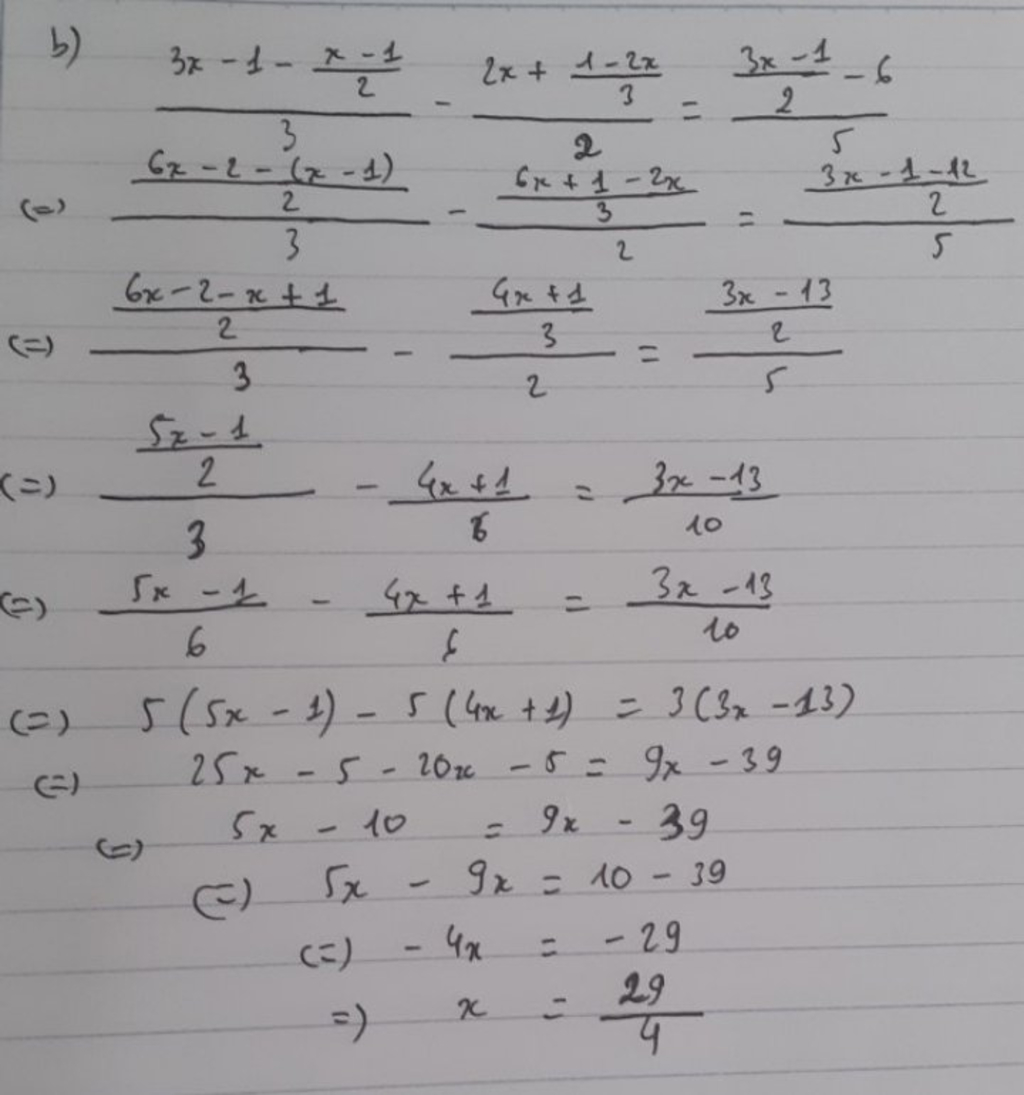 b) \frac{3x - 1 - \frac{x - 1}{2}}{3} - \frac{2x + \frac{1 - 2x}{3}}{2} = \frac{\frac{3x - 1}{2} - 6}{5}
(=) \frac{\frac{6x - 2 - (x - 1)}{2}}{3} - \frac{\frac{6x + 1 - 2x}{3}}{2} = \frac{\frac{3x - 1 - 12}{2}}{5}
(=) \frac{\frac{6x - 2 - x + 1}{2}}{3} - \frac{\frac{4x + 1}{3}}{2} = \frac{\frac{3x - 13}{2}}{5}
(=) \frac{\frac{5x - 1}{2}}{3} - \frac{4x + 1}{6} = \frac{3x - 13}{10}
(=) \frac{5x - 1}{6} - \frac{4x + 1}{6} = \frac{3x - 13}{10}
(=) 5(5x - 1) - 5(4x + 1) = 3(3x - 13)
(=) 25x - 5 - 20x - 5 = 9x - 39
(=) 5x - 10 = 9x - 39
(=) 5x - 9x = 10 - 39
(=) - 4x = - 29
=) x = \frac{29}{4}